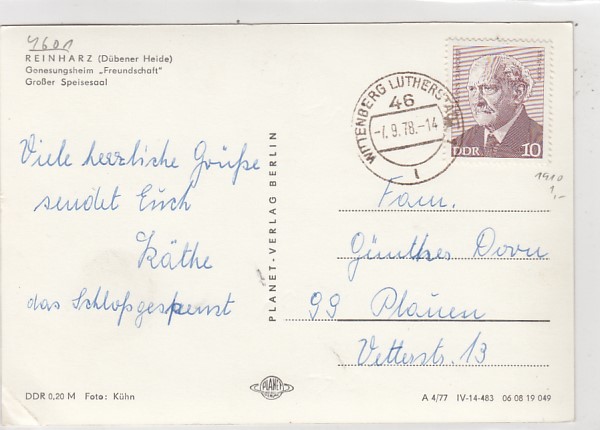 4601
REINHARZ (Dübener Heide)
Genesungsheim „Freundschaft"
Großer Speisesaal
Viele herzliche Grüße
sendet Euch
Käthe
das Schloßgespenst
PLANET-VERLAG BERLIN
WITTENBERG LUTHERSTADT
46
-7.9.78.-14
1
DDR
10
1910
1,-
Fam.
Günther Dorn
99 Plauen
Vetterstr. 13
DDR 0,20 M Foto: Kühn
PLANET
A 4/77 IV-14-483 06 08 19 049